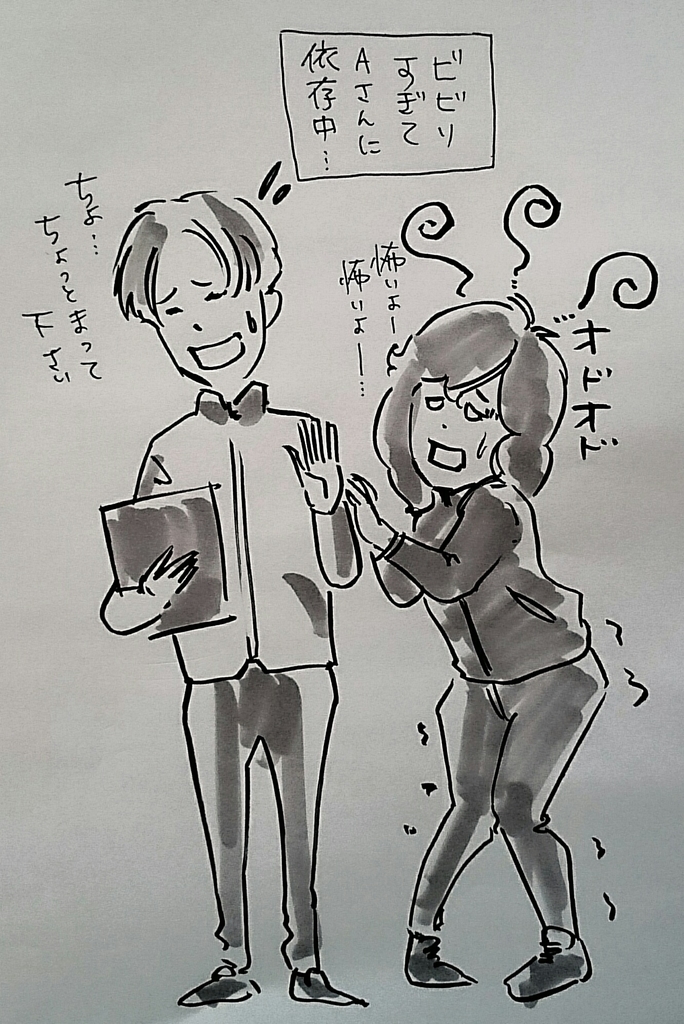 ビビリ
すぎて
Aさんに
依存中…
怖いよー
怖いよー…
オドオド
ちょ…
ちょっとまって
下さい